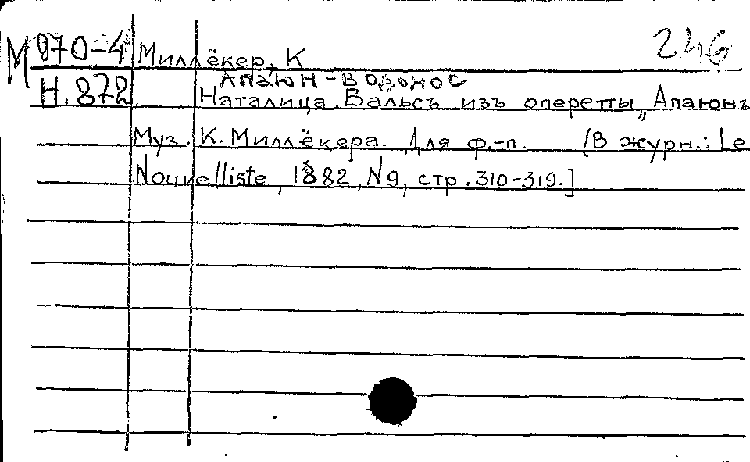 М 970-4 Миллёкер, К 246
Апаюн-Водонос
Н.872 Наталица. Вальсъ изъ оперетты „Апаюнъ
Муз. К. Миллёкера. Для ф.-п. [В журн.: Le
Nouvelliste, 1882, N9, стр. 310-319.]